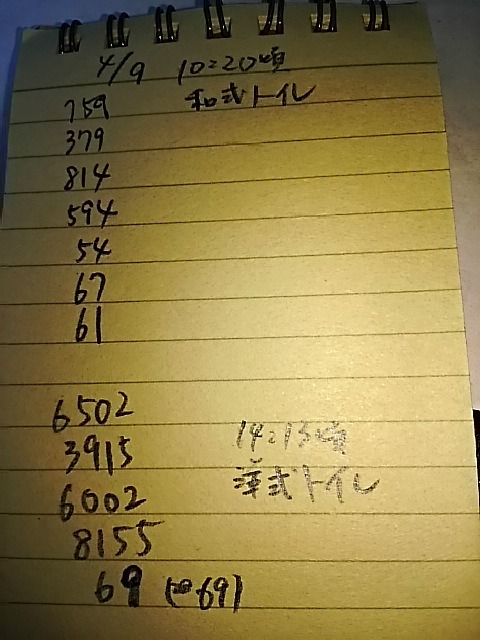 4/9 10:20頃
759 和式トイレ
379
814
594
54
67
61
6502
14:13頃
3915
洋式トイレ
6002
8155
69 (69)